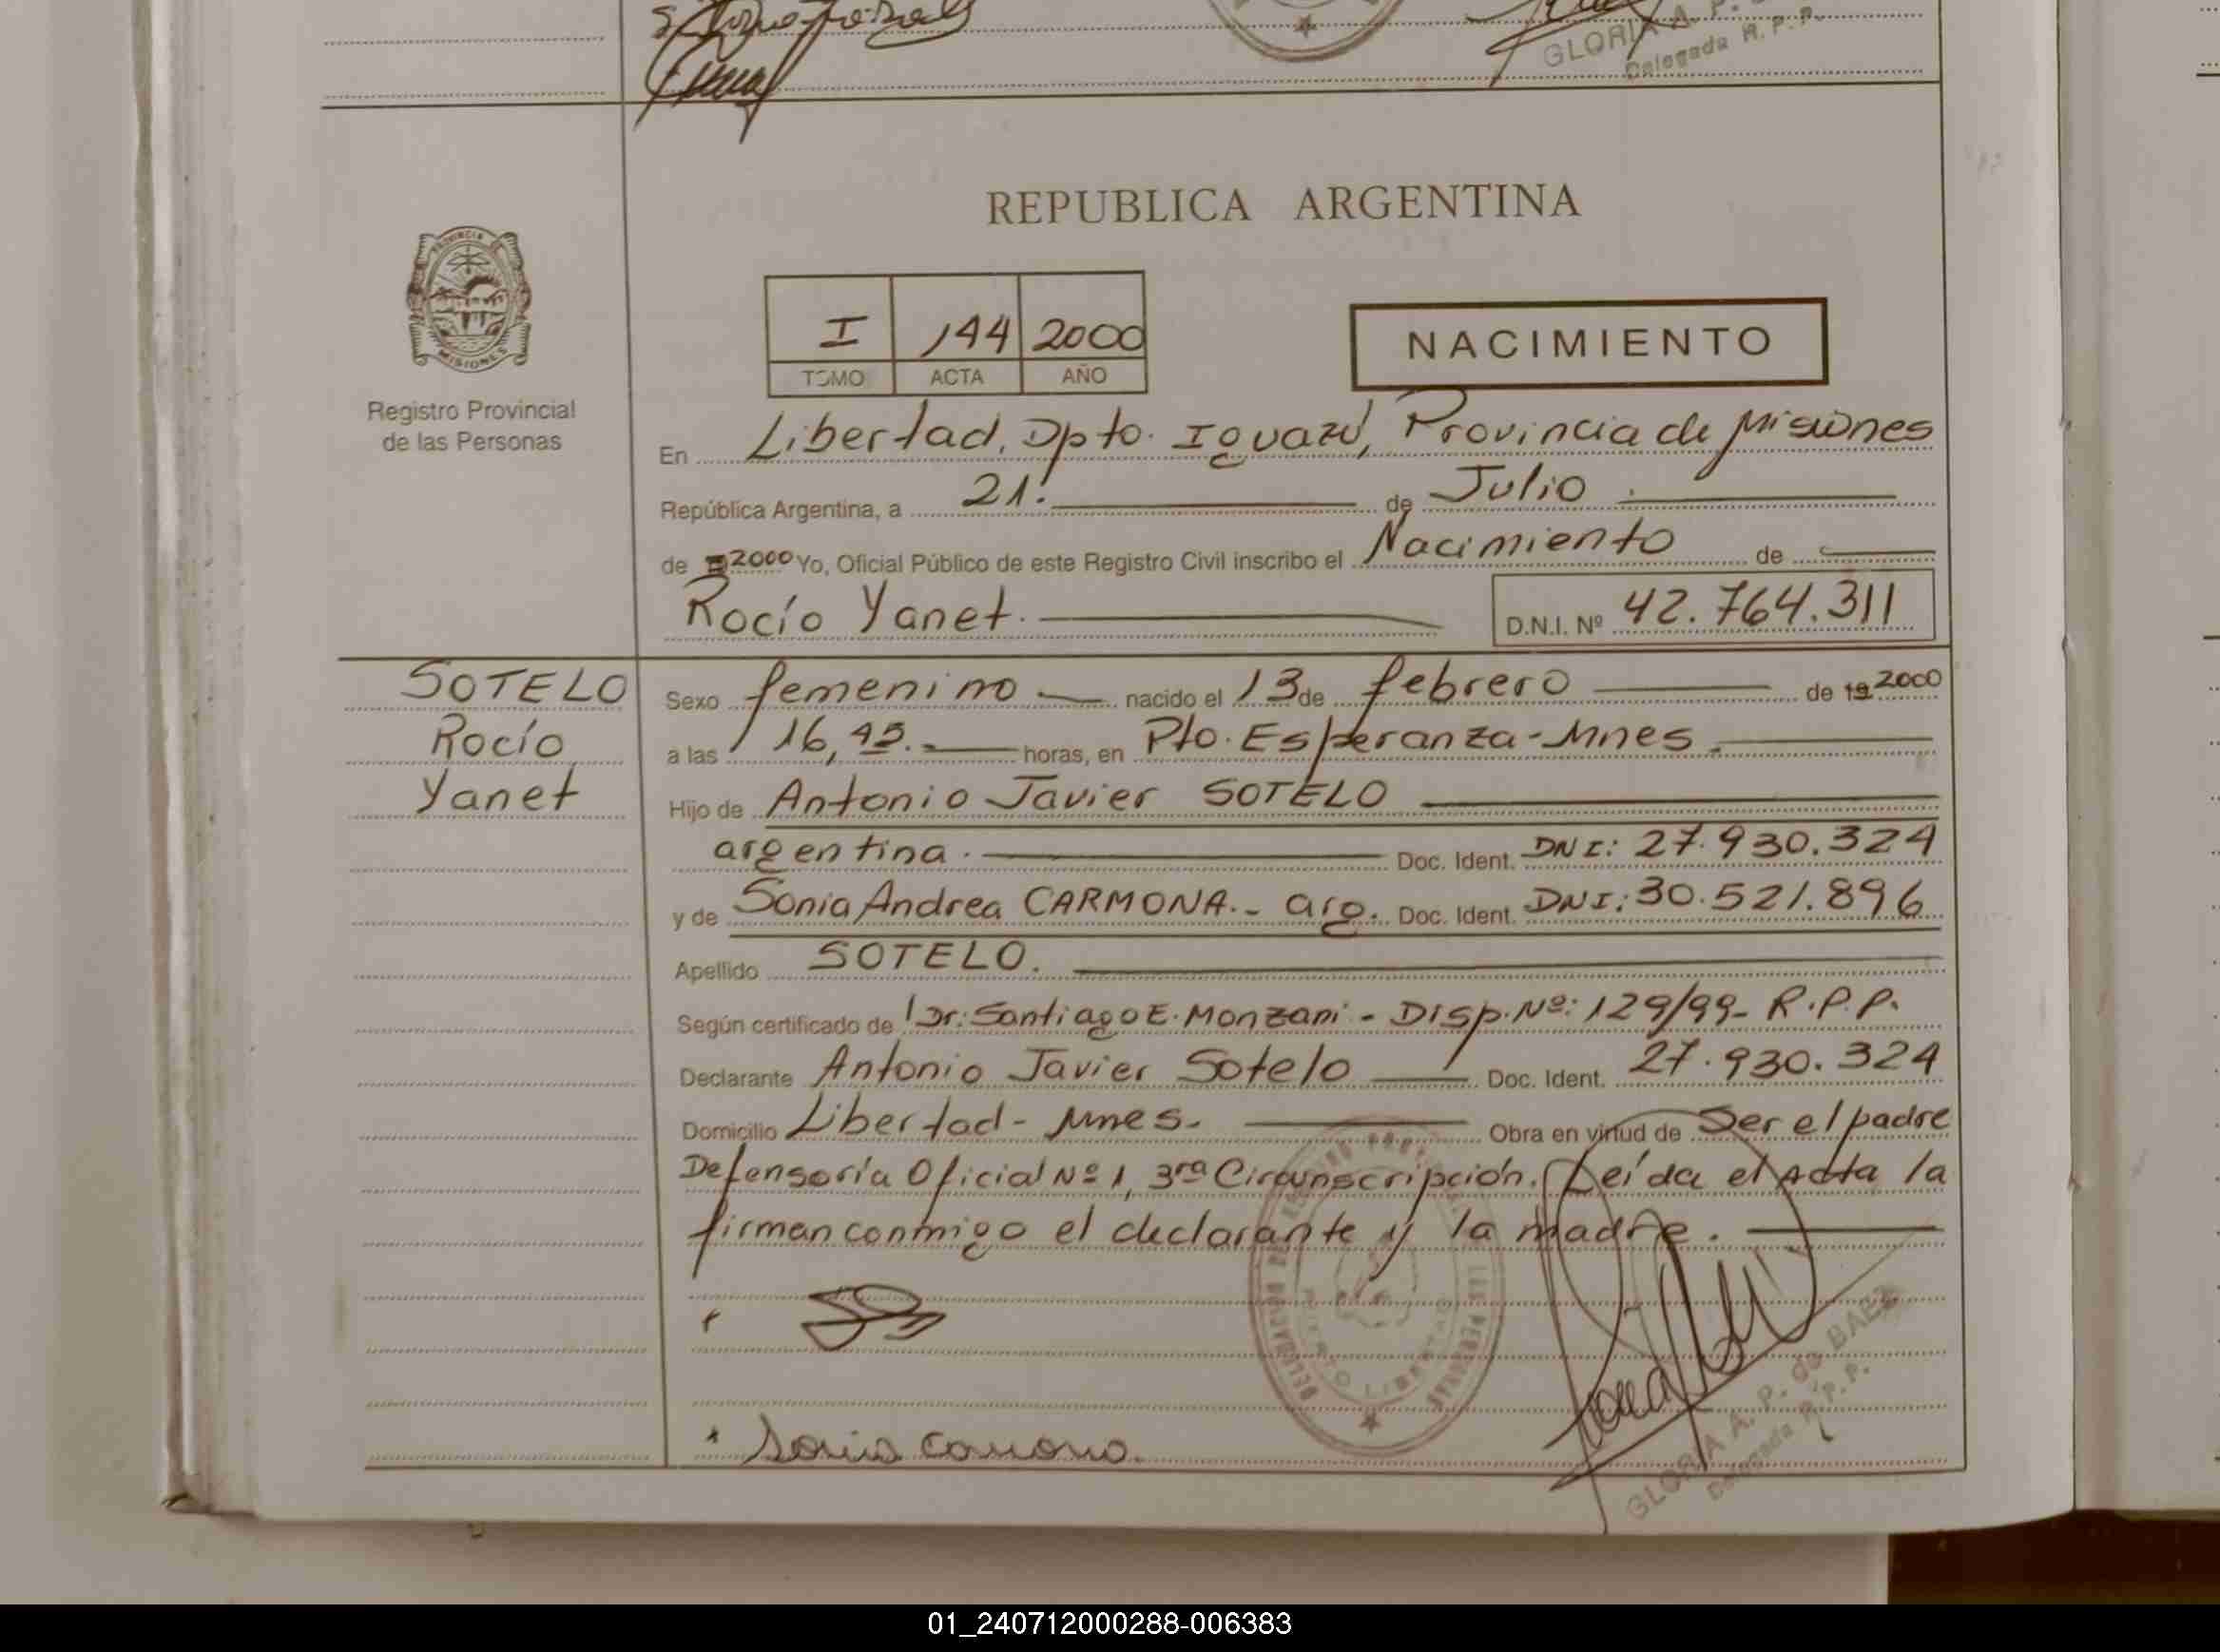 GLORIA A. P.
Delegada R. P. P.
REPUBLICA ARGENTINA
PROVINCIA DE
MISIONES
Registro Provincial
de las Personas
I 144 2000
TOMO ACTA AÑO
NACIMIENTO
En Libertad, Dpto. Iguazú, Provincia de Misiones
República Argentina, a 21. de Julio
de 2000 Yo, Oficial Público de este Registro Civil inscribo el Nacimiento de
Rocío Yanet. D.N.I. Nº 42.764.311
SOTELO
Rocío
Yanet
Sexo femenino nacido el 13 de febrero de 19 2000
a las 16,45. horas, en Pto. Esperanza-Mnes.
Hijo de Antonio Javier SOTELO
argentina. Doc. Ident. DNI: 27.930.324
y de Sonia Andrea CARMONA.- arg. Doc. Ident. DNI: 30.521.896
Apellido SOTELO.
Según certificado de Dr: Santiago E. Monzani - Disp. Nº: 129/99- R.P.P.
Declarante Antonio Javier Sotelo Doc. Ident. 27.930.324
Domicilio Libertad- Mnes. Obra en virtud de Ser el padre
Defensoría Oficial Nº 1, 3ra Circunscripción. Leída el Acta la
firman conmigo el declarante y la madre.
Sonia Carmona.
GLORIA A. P. de BAEZ
Delegada R. P. P.
01_240712000288-006383